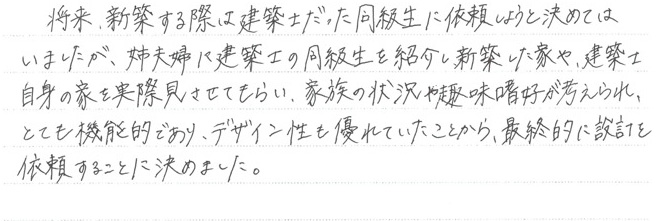 将来、新築する際は建築士だった同級生に依頼しようと決めては
いましたが、姉夫婦に建築士の同級生を紹介し新築した家や、建築士
自身の家を実際見させてもらい、家族の状況や趣味嗜好が考えられ、
とても機能的であり、デザイン性も優れていたことから、最終的に設計を
依頼することに決めました。